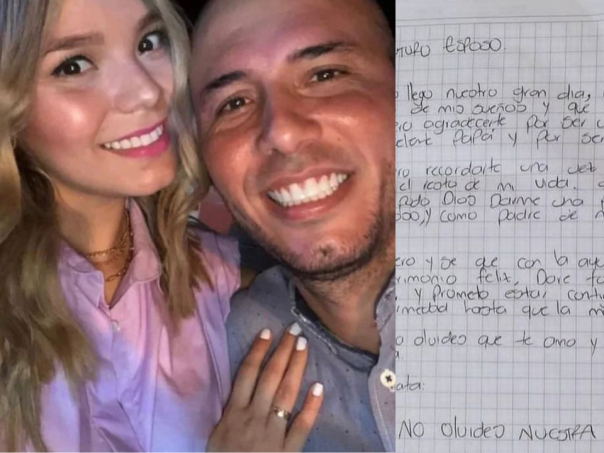 TURO ESPOSO.
llego nuestro gran dia,
de mis sueños y que
ero agradecerte por ser u
elente Papá y por ser
ero recordarte una vez
el resto de mi vida,
Dios Darme una
y como padre de
ero y se que con la ayu
rimonio feliz, Dare
y prometo estar
hasta que la m
olvides que te amo y
ata:
NO olvides NUESTRA